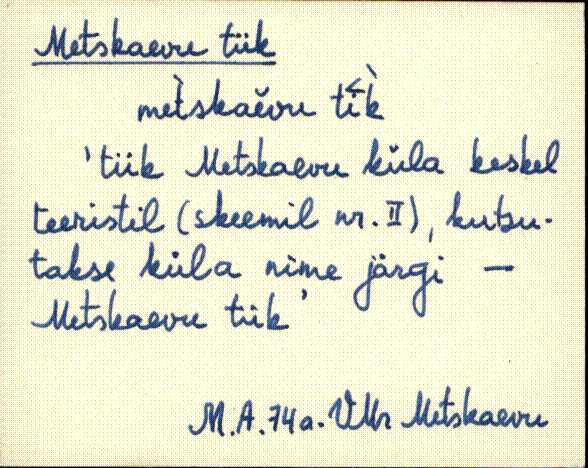 Metskaevu tiik
mètskaĕvu tì̆k
'tiik Metskaevu küla keskel
teeristil (skeemil nr. II), kutsu-
takse küla nime järgi —
Metskaevu tiik'
M.A. 74a. VMr Metskaevu